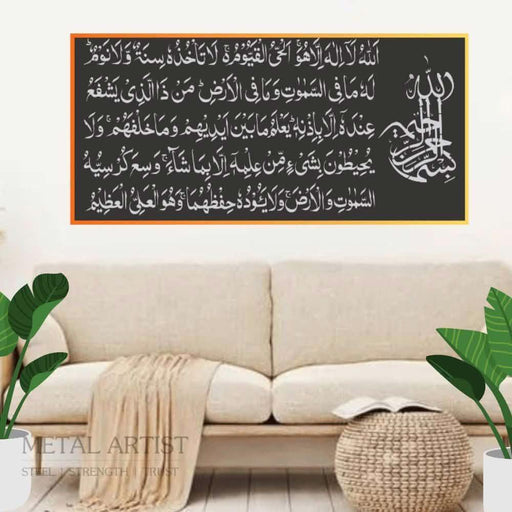 بسم الله الرحمن الرحيم
اَللّٰهُ لَاۤ اِلٰهَ اِلَّا هُوَۚ اَلْحَیُّ الْقَیُّوْمُ ۚ لَا تَاْخُذُهٗ سِنَةٌ وَّلَا نَوْمٌؕ
لَهٗ مَا فِی السَّمٰوٰتِ وَمَا فِی الْاَرْضِؕ مَنْ ذَا الَّذِیْ یَشْفَعُ
عِنْدَهٗۤ اِلَّا بِاِذْنِهٖؕ یَعْلَمُ مَا بَیْنَ اَیْدِیْهِمْ وَمَا خَلْفَهُمْۚ وَلَا
یُحِیْطُوْنَ بِشَیْءٍ مِّنْ عِلْمِهٖۤ اِلَّا بِمَا شَآءَۚ وَسِعَ كُرْسِیُّهُ
السَّمٰوٰتِ وَالْاَرْضَۚ وَلَا یَـُٔوْدُهٗ حِفْظُهُمَاۚ وَهُوَ الْعَلِیُّ الْعَظِیْمُ
METAL ARTIST
STEEL | STRENGTH | TRUST